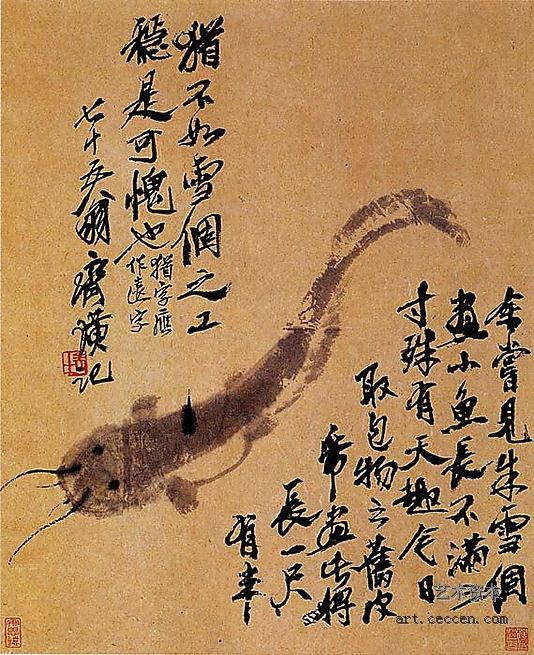 余嘗見朱雪個
畫小魚長不滿
寸殊有天趣今日
取包物之舊皮
帋畫此
長一尺
有半
猶不如雪個之工
穩是可愧也
猶字應
作遠字
七十五翁齊璜記
艺术资本
art.ceccen.com